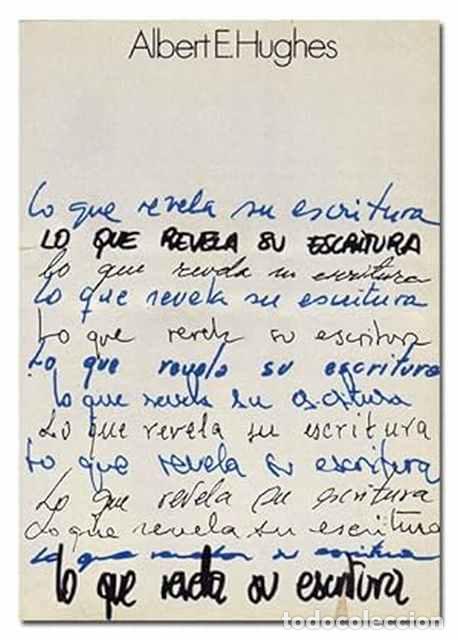 Albert E. Hughes
lo que revela su escritura
LO QUE REVELA SU ESCRITURA
lo que revela su escritura
lo que revela su escritura
Lo que revela su escritura
Lo que revela su escritura
lo que revela su escritura
Lo que revela su escritura
Lo que revela su escritura
Lo que revela su escritura
Lo que revela su escritura
Lo que revela su escritura
lo que revela su escritura
todocoleccion